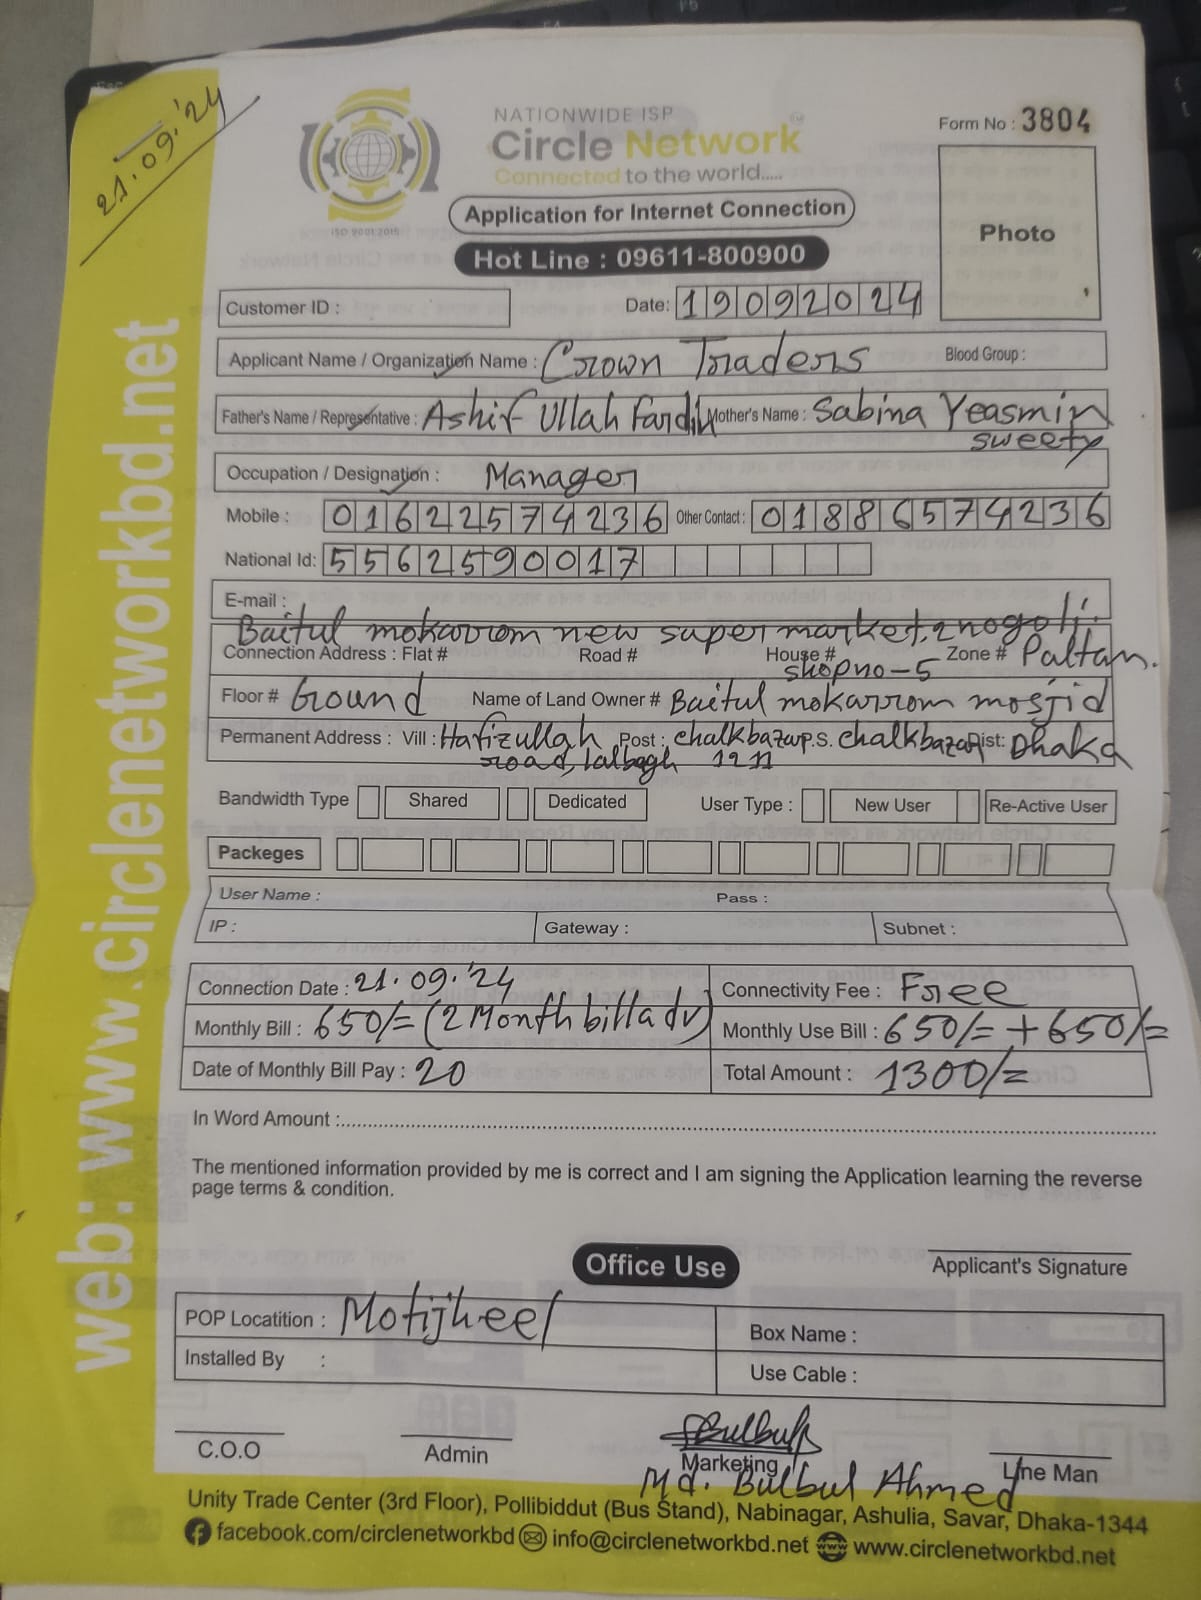 21.09.'24
NATIONWIDE ISP
Circle Network
Connected to the world.....
ISO 9001:2015
Form No : 3804
Application for Internet Connection
Hot Line : 09611-800900
Photo
Customer ID :
Date: 19092024
Applicant Name / Organization Name : Crown Traders Blood Group :
Father's Name / Representative : Ashif Ullah Fardin Mother's Name : Sabina Yeasmin
sweety
Occupation / Designation : Manager
Mobile : 01622574236 Other Contact : 01886574236
National Id: 5562590017
E-mail :
Baitul mokarrom new super market. 2nogoli.
Connection Address : Flat # Road # House # Zone # Paltan.
shop no-5
Floor # Ground Name of Land Owner # Baitul mokarrom mosjid
Permanent Address : Vill : Hafizullah Post : chalkbazar P.S. chalkbazar Dist: Dhaka
road, lalbagh 1211
Bandwidth Type Shared Dedicated User Type : New User Re-Active User
Packeges
User Name : Pass :
IP : Gateway : Subnet :
Connection Date : 21.09.'24 Connectivity Fee : Free
Monthly Bill : 650/= (2 Month bill adv) Monthly Use Bill : 650/= + 650/=
Date of Monthly Bill Pay : 20 Total Amount : 1300/=
In Word Amount :
The mentioned information provided by me is correct and I am signing the Application learning the reverse
page terms & condition.
Applicant's Signature
Office Use
POP Locatition : Motijheel Box Name :
Installed By : Use Cable :
Bulbul
C.O.O Admin Marketing Line Man
Md. Bulbul Ahmed
Unity Trade Center (3rd Floor), Pollibiddut (Bus Stand), Nabinagar, Ashulia, Savar, Dhaka-1344
facebook.com/circlenetworkbd info@circlenetworkbd.net www.circlenetworkbd.net
web: www.circlenetworkbd.net